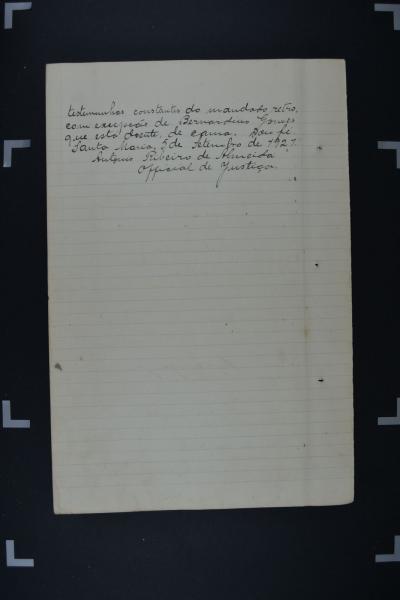 testimunhas constantes do mandado retro,
com excepção de Bernardino Gomes
que está doente de cama. Dou fé.
Santa Maria, 5 de Setembro de 1927.
Antonio Ribeiro de Almeida
Official de Justiça.